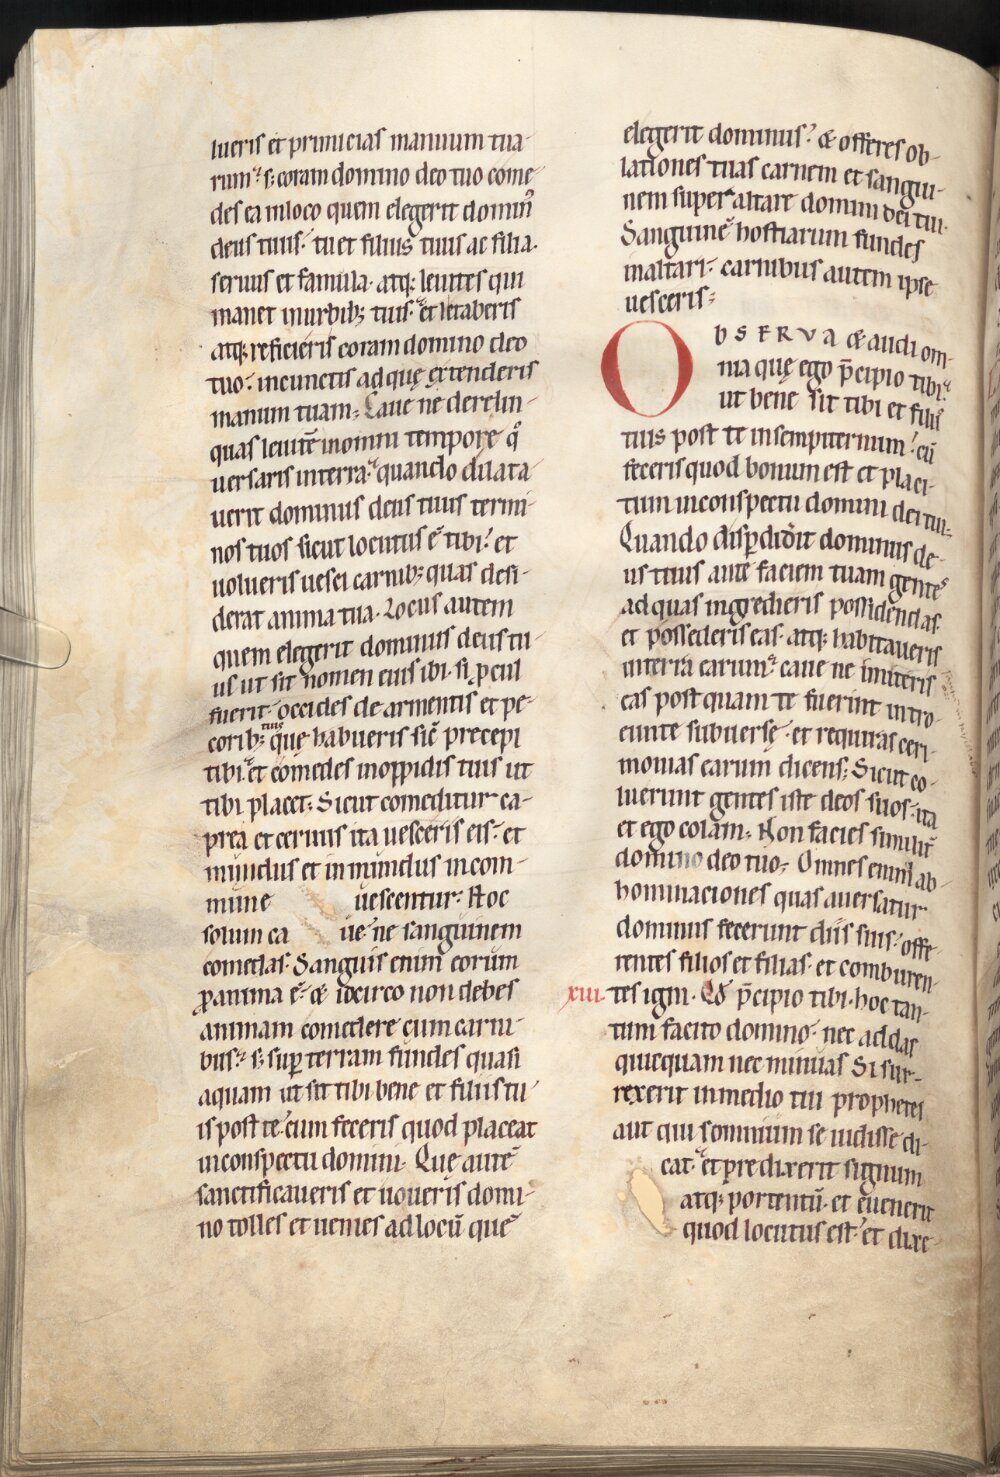 lueris et primicias manuum tua-
rum. s; coram domino deo tuo come-
des ea inloco quem elegerit domin̄
deus tuus. tu et filius tuus ac filia.
seruus et famula. atq; leuites qui
manet inurbib; tuis. et letaberis
atq; reficieris coram domino deo
tuo. incunctis ad quę extenderis
manum tuam; Caue ne derelin-
quas leuitē inomni tempore q̊
uersaris interra. quando dilata-
uerit dominus deus tuus termi-
nos tuos sicut locutus ē tibi. et
uolueris uesci carnib; quas desi-
derat anima tua. Locus autem
quem elegerit dominus deus tu-
us ut sit nomen eius ibi. si ꝓcul
fuerit. occides de armentis et pe-
corib; tuis quę habueris sic̄ precepi
tibi. et comedes inoppidis tuis ut
tibi placet; Sicut comeditur ca-
prea et ceruus ita uesceris eis. et
mundus et inmundus incom-
mune uescentur. Hoc
solum caue ne sanguinem
comedas. Sanguis enim eorum
ꝓ anima ē. & idcirco non debes
animam comedere cum carni-
bus. s; suꝑ terram fundes quasi
aquam ut sit tibi bene et filiis tu-
is post te. cum feceris quod placeat
inconspectu domini. Que autē
sanctificaueris et uoueris domi-
no tolles et uenies ad locū quē
elegerit dominus. & offeres ob-
lationes tuas carnem et sangui-
nem super altare domini dei tui.
Sanguinē hostiarum fundes
inaltari. carnibus autem ipse
uesceris;
OBSERVA & audi om-
nia quę ego p̄cipio tibi.
ut bene sit tibi et filiis
tuis post te insempiternum. cū
feceris quod bonum est et placi-
tum inconspectu domini dei tui;
Quando disꝑdid̄it dominus de-
us tuus ante faciem tuam gentes
ad quas ingredieris possidendas.
et possederis eas. atq; habitaueris
interra earum. caue ne imiteris
eas postquam te fuerint intro-
eunte subuersę. et requiras ceri-
monias earum dicens; Sicut co-
luerunt gentes iste deos suos. ita
et ego colam; Non facies similit̄
domino deo tuo; Omnes enim ab-
hominaciones quas auersatur
dominus fecerunt diis suis. offe-
rentes filios et filias. et comburen-
xiii. tes igni. Qd̄ p̄cipio tibi. hoc tan-
tum facito domino. nec addas
quicquam nec minuas Si sur-
rexerit inmedio tui prophetes
aut qui somnium se uidisse di-
cat. et predixerit signum
atq; portentū. et euenerit
quod locutus est. et dixe-